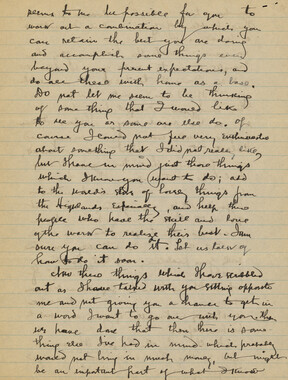 seems to me be possible for you to
work out a combination by which you
can retain the best you are doing
and accomplish some things even
beyond your present expectations, and
do all these with home as a base.
Do not let me seem to be thinking
of something that I would like
to see you or some one else do. Of
course I could not feel very
about something that I did not really like,
but I have in mind just those things
which I know you want to do; add
to the world's store of lovely things from
the Highlands especially, and help those
people who have the skill and love
of the work to realize their best. I am
sure you can do it. Let us talk of
how to do it soon.
All these things which I have scribbled
out as I have talked with you sitting opposite
me and not giving you a chance to get in
a word I want to go over with you. When
we have done that then there is some
thing else I've had in mind which probably
would not bring in much money, but might
be an important part of what I know